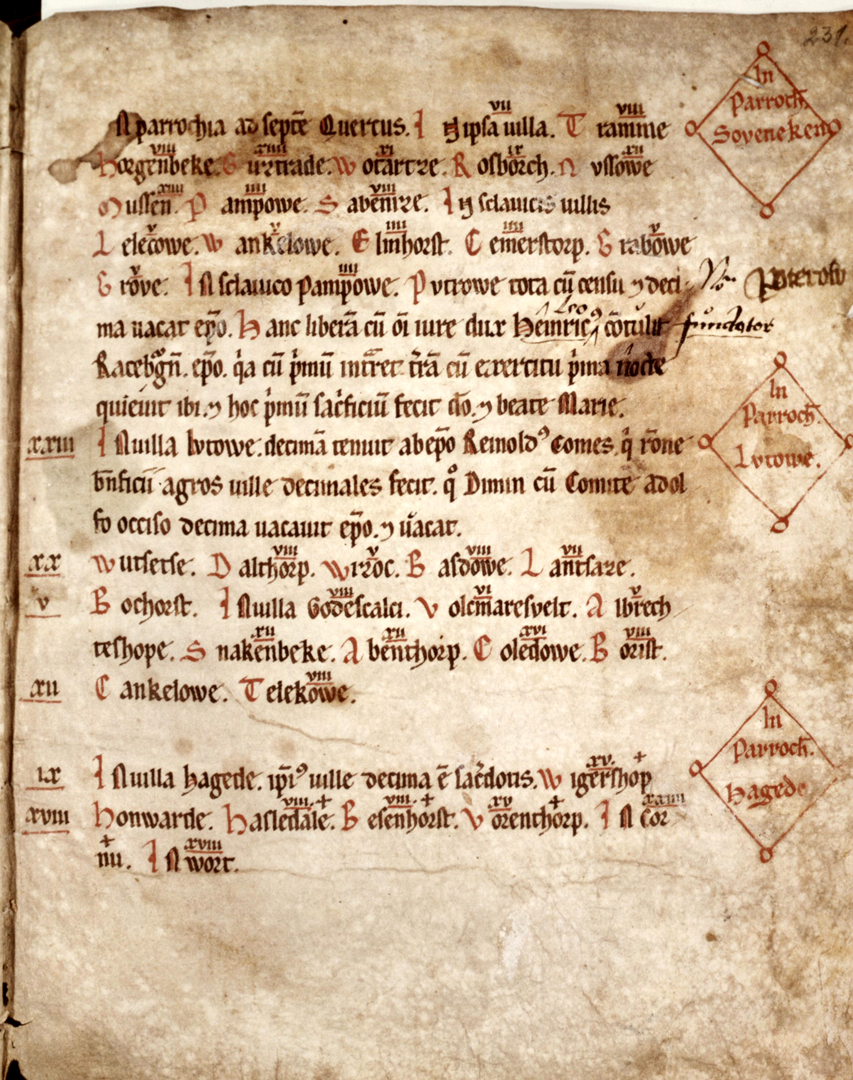 231.
In
Parroch.
Soveneken
N parrochia ad septē Quercus. I N ipsa uilla. vii T ramme viii
Horgenbeke. viii G urtrade. xiiii W otartze. xi R osborch. ix N vssowe xii
Mussen. xiiii P ampowe. iiii S abenize. viii I N sclauicis uillis
L elecowe. v W ankelowe. v E linhorst. iiii C emerstorp. iiii G rabowe v
G rove. v I N sclauico Pampowe. iiii P vtrowe tota cū censu ⁊ deci
ma uacat ep̄o. H anc liberā cū om̄i iure dux Heinric⁹ Leo cōtulit fundator
Racebg̃n. ep̄o. q̇a cū ṗmū intr̄et tr̄ā cū exercitu ṗma nocte
quieuit ibi. ⁊ hoc ṗmū sac̄ficiū fecit dō. ⁊ beate Marie.
In
Parroch.
Lvtowe.
xxiii I N uilla lvtowe. decimā tenuit ab ep̄o Reinold⁹ Comes. q̇ rōne
bn̄ficii agros uille decimales fecit. q° Dimin cū Comite adol
fo occiso decima uacauit ep̄o. ⁊ uacat.
xx W utsetse. D althorp. viii W izoc. v B asdowe. viii L antsaze. vii
v B ochorst. I N uilla Godescalci. viii V olcmaresvelt. vi A lbrech
teshope. S nakenbeke. xii A benthorp. xii C oledowe. xvi B orist. viii
xii C ankelowe. T elekowe. viii
In
Parroch.
Hagede
ix I N uilla hagede. ip̄i⁹ uille decima ē sac̄dotis. W igershop xv. +
xviii Honwarde. Hasledale. viii. + B esenhorst. viii. + V orenthorp. xv + I N cor xxiiii
nu. + I N wort. xviii